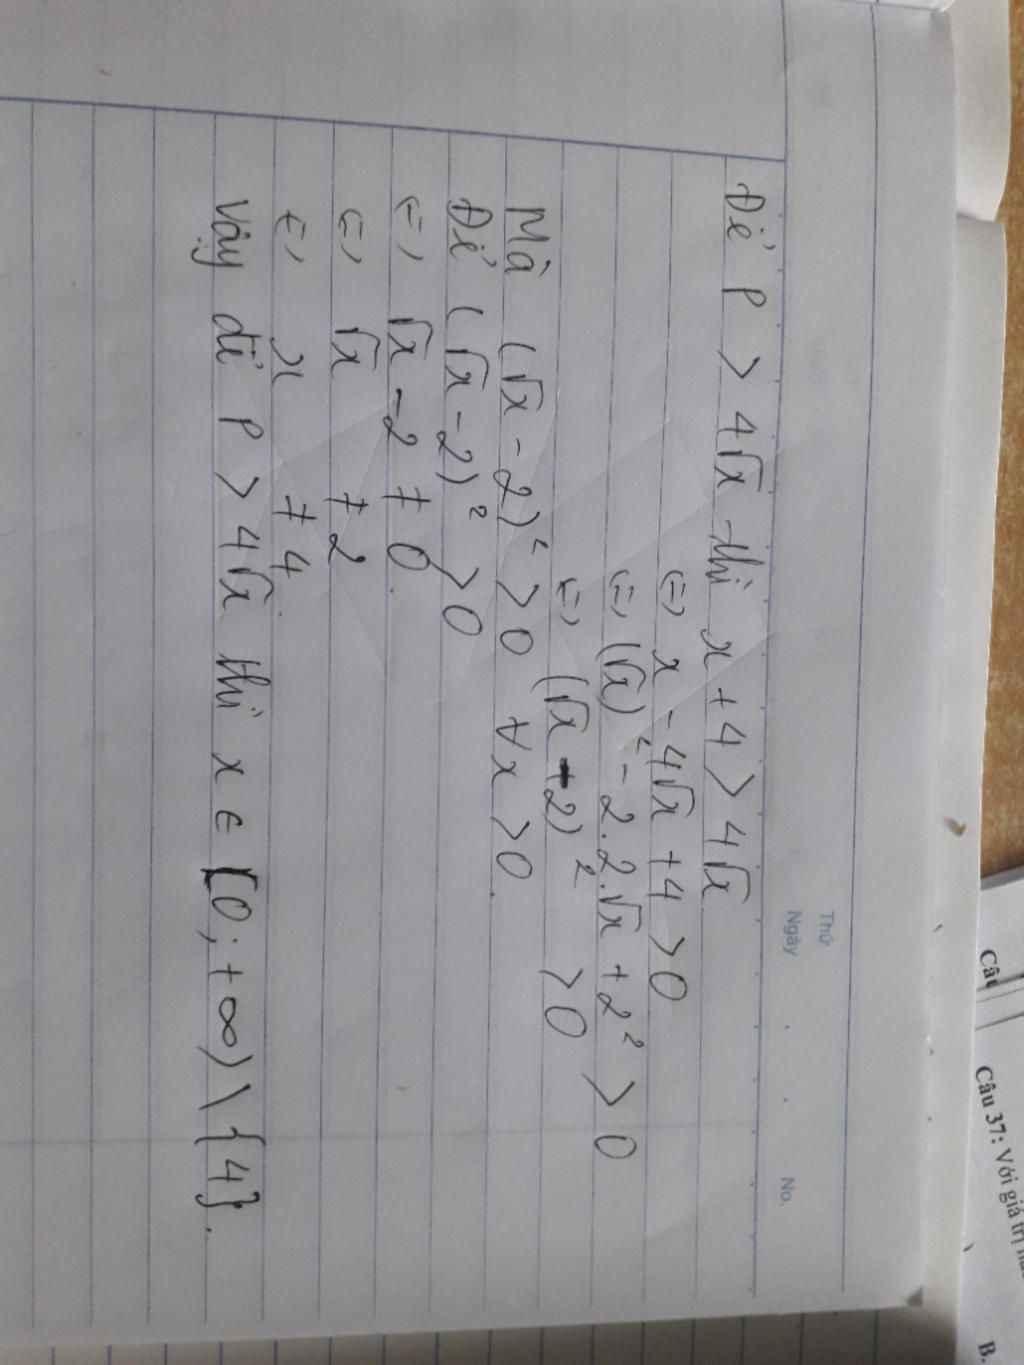 Thứ
Ngày . . No.
Để P > 4√x thì x + 4 > 4√x
(=) x - 4√x + 4 > 0
(=) (√x)² - 2.2.√x + 2² > 0
(=) (√x - 2)² > 0
Mà (√x - 2)² > 0 ∀x > 0.
Để (√x - 2)² > 0
(=) √x - 2 ≠ 0.
(=) √x ≠ 2
(=) x ≠ 4.
Vậy để P > 4√x thì x ∈ [0; +∞) \ {4}.
Câu
Câu 37: Với giá trị
B.